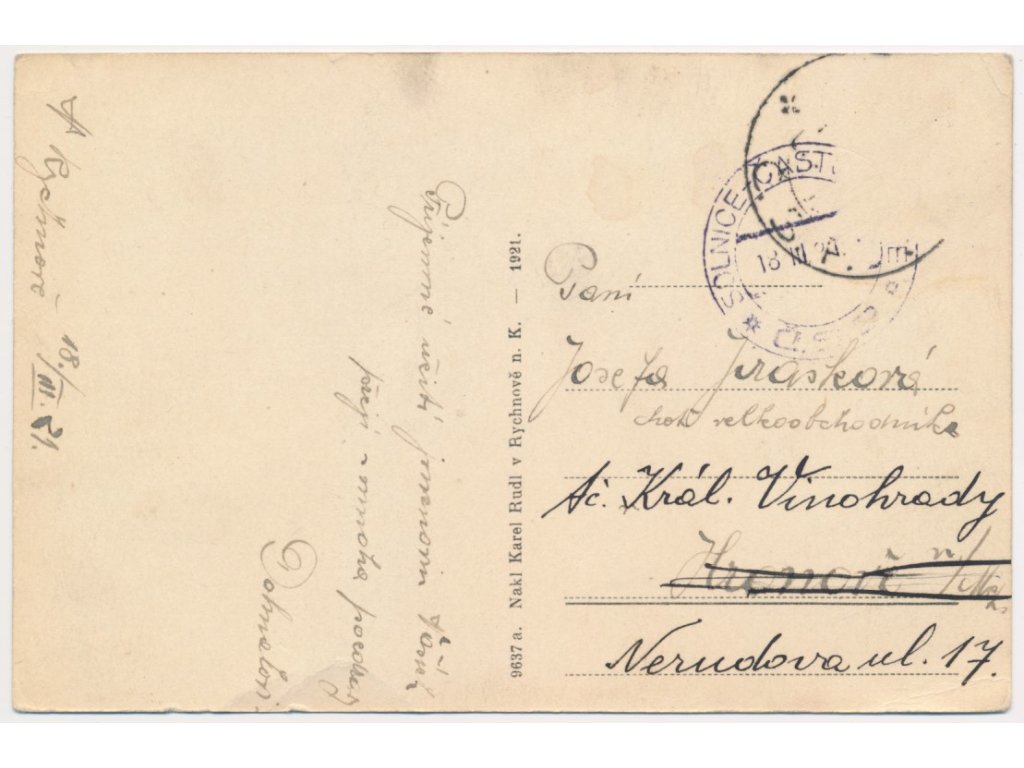 V Rychnově 18./III. 21.
Příjemné užití jmenin Vám
přejí a mnoho pozdrav
Dohnalovi.
9637 a. Nakl Karel Rudl v Rychnově n. K. — 1921.
SOLNICE-ČAST
18 III 21
Č.S.P.
Paní
Josefa Jirásková
choť velkoobchodníka
tč. Král. Vinohrady
Hronově n/Met.
Nerudova ul. 17.